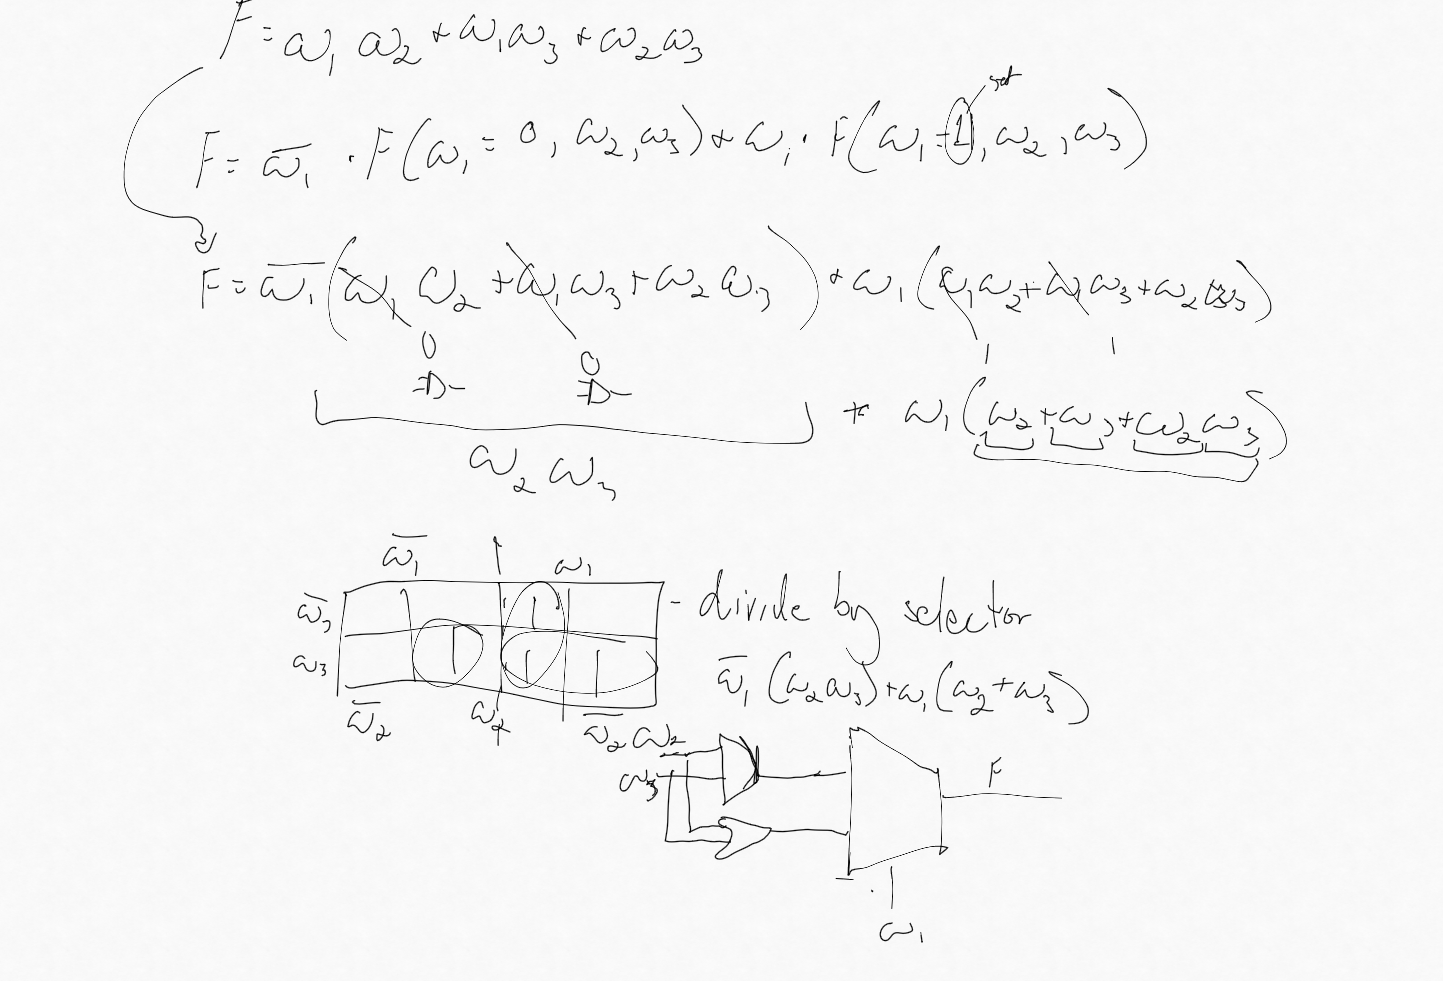 F = ω₁ ω₂ + ω₁ω₃ + ω₂ω₃
set
F = ω̅₁ · F(ω₁ = 0, ω₂, ω₃) + ω₁ · F(ω₁ = 1, ω₂, ω₃)
F = ω̅₁ (ω₁ ω₂ + ω₁ ω₃ + ω₂ ω₃) + ω₁ (ω₁ω₂ + ω₁ ω₃ + ω₂ ω₃)
0 0 1 1
+ ω₁ (ω₂ + ω₃ + ω₂ ω₃)
ω₂ ω₃
ω̅₁ ω₁
ω̅₃ 1 - divide by selector
ω₃ 1 1 1 ω̅₁ (ω₂ω₃) + ω₁ (ω₂ + ω₃)
ω̅₂ ω₂ ω̅₂ ω₂
ω₃ F
ω₁